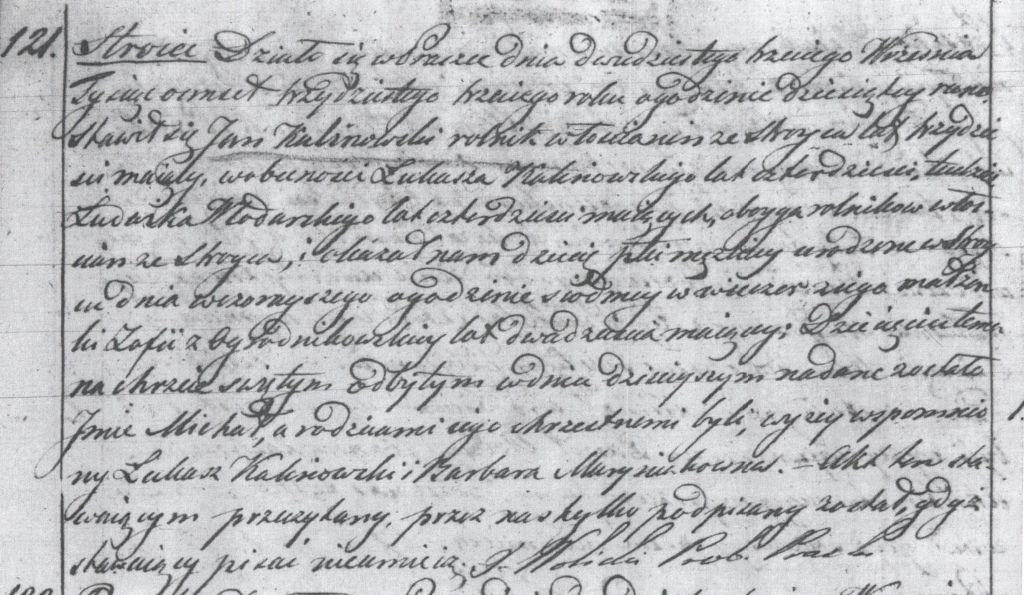 121. Stroiec Działo się w Praszce dnia dwudziestego trzeciego Września
Tysiąc ośmset trzydziestego trzeciego roku o godzinie dziesiątey rano
stawił się Jan Kalinowski rolnik włościanin ze Stroyca lat trzydzie
ści maiący, w obecności Łukasza Kalinowskiego lat czterdzieści, tudzież
Ludwika Włodarskiego lat czterdzieści maiących, oboyga rolników włoś-
cian ze Stroyca, i okazał nam dziecię płci męzkiey urodzone w Stroy
cu dnia wczorayszego o godzinie siódmey w wieczór z iego małżon
ki Zofii z Ogrodnikowskich lat dwadzieścia maiącey; Dziecięciu temu
na chrzcie świętym odbytym w dniu dzisieyszym nadane zostało
Imie Michał, a rodzicami iego chrzestnemi byli, wyżey wspomnio
ny Łukasz Kalinowski i Barbara Maryniakowna. – Akt ten sta-
waiącym przeczytany, przez nas tylko podpisany został, gdyż
stawaiący pisać nieumieią.